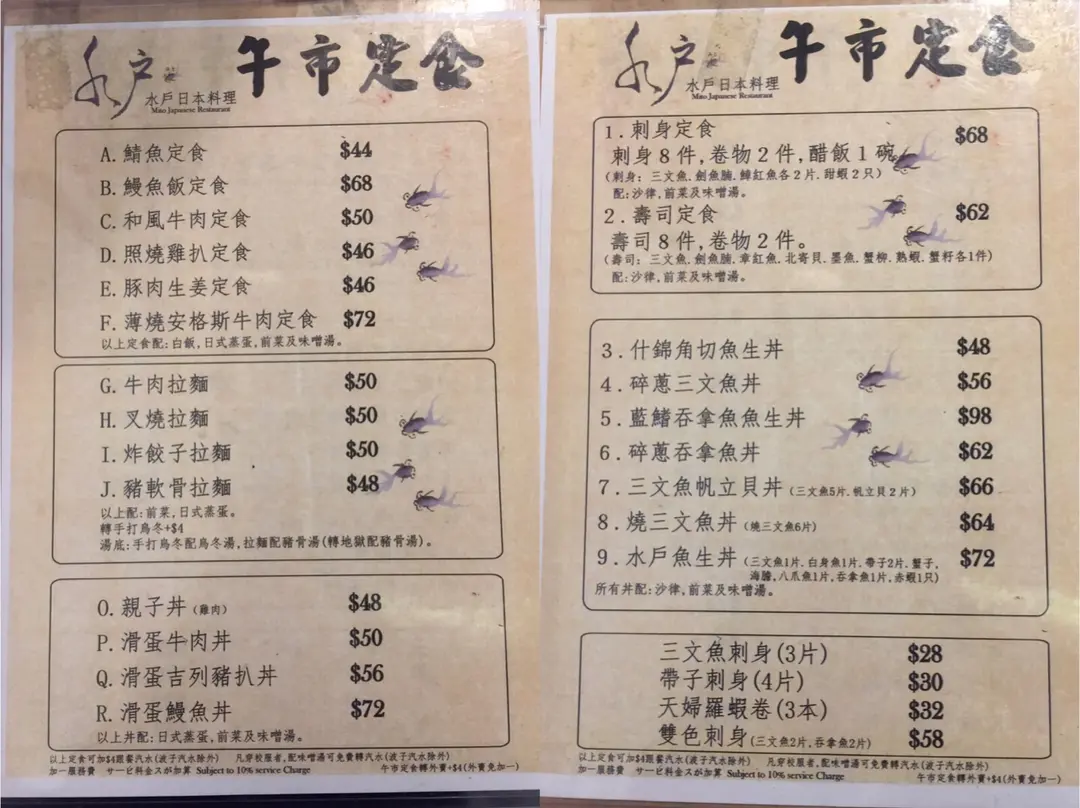 水戶
水戶日本料理
Mito Japanese Restaurant
午市定食
A. 鯖魚定食 $44
B. 鰻魚飯定食 $68
C. 和風牛肉定食 $50
D. 照燒雞扒定食 $46
E. 豚肉生姜定食 $46
F. 薄燒安格斯牛肉定食 $72
以上定食配:白飯,日式蒸蛋,前菜及味噌湯。
G. 牛肉拉麵 $50
H. 叉燒拉麵 $50
I. 炸餃子拉麵 $50
J. 豬軟骨拉麵 $48
以上配:前菜,日式蒸蛋。
轉手打烏冬+$4
湯底:手打烏冬配烏冬湯,拉麵配豬骨湯(轉地獄配豬骨湯)。
O. 親子丼(雞肉) $48
P. 滑蛋牛肉丼 $50
Q. 滑蛋吉列豬扒丼 $56
R. 滑蛋鰻魚丼 $72
以上丼配:日式蒸蛋,前菜及味噌湯。
以上定食可加$4跟餐汽水(波子汽水除外) 凡穿校服者,配味噌湯可免費轉汽水(波子汽水除外)
加一服務費 サービ料金スが加算 Subject to 10% service Charge 午市定食轉外賣+$4(外賣免加一)
水戶
水戶日本料理
Mito Japanese Restaurant
午市定食
1. 刺身定食 $68
刺身8件,卷物2件,醋飯1碗
(刺身: 三文魚.劍魚腩.鱆紅魚各2片.甜蝦2只)
配:沙律,前菜及味噌湯。
2. 壽司定食 $62
壽司8件,卷物2件。
(壽司: 三文魚.劍魚腩.章紅魚.北寄貝.墨魚.蟹柳.熟蝦.蟹籽各1件)
配:沙律,前菜及味噌湯。
3. 什錦角切魚生丼 $48
4. 碎蔥三文魚丼 $56
5. 藍鰭吞拿魚魚生丼 $98
6. 碎蔥吞拿魚丼 $62
7. 三文魚帆立貝丼(三文魚5片.帆立貝2片) $66
8. 燒三文魚丼(燒三文魚6片) $64
9. 水戶魚生丼(三文魚1片.白身魚1片.帶子2片.蟹子, $72
海膽,八爪魚1片,吞拿魚1片,赤蝦1只)
所有丼配:沙律,前菜及味噌湯。
三文魚刺身(3片) $28
帶子刺身(4片) $30
天婦羅蝦卷(3本) $32
雙色刺身(三文魚2片,吞拿魚2片) $58
以上定食可加$4跟餐汽水(波子汽水除外) 凡穿校服者,配味噌湯可免費轉汽水(波子汽水除外)
加一服務費 サービ料金スが加算 Subject to 10% service Charge 午市定食轉外賣+$4(外賣免加一)